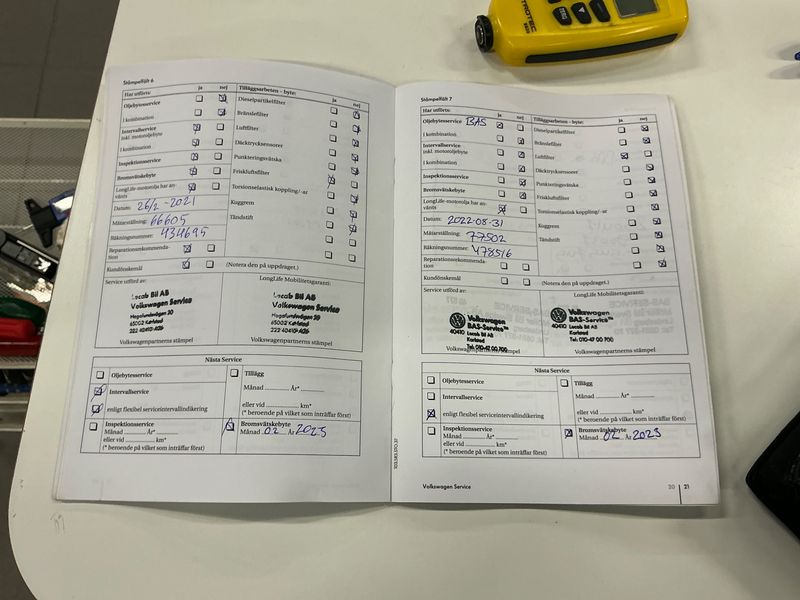 Stämpelfält 6
Har utförts: ja nej
Oljebytesservice
i kombination
Intervallservice
inkl. motoroljebyte
i kombination
Inspektionsservice
Bromsvätskebyte
LongLife-motorolja har an-
vänts
Datum: 26/2 -2021
Mätarställning: 66605
Räkningsnummer: 434695
Reparationsrekommenda-
tion
Kundönskemål
Tilläggsarbeten – byte: ja nej
Dieselpartikelfilter
Bränslefilter
Luftfilter
Däcktrycksensorer
Punkteringsvätska
Friskluftsfilter
Torsionselastisk koppling/-ar
Kuggrem
Tändstift
(Notera den på uppdraget.)
Service utförd av:
Locab Bil AB
Volkswagen Service
65002 Karlstad
LongLife Mobilitetsgaranti:
Locab Bil AB
Volkswagen Service
65002 Karlstad
Volkswagenpartnerns stämpel
Volkswagenpartnerns stämpel
Nästa Service
Oljebytesservice
Intervallservice
enligt flexibel serviceintervallindikering
Inspektionsservice
Månad År*
eller vid km*
(* beroende på vilket som inträffar först)
Tillägg
Månad År*
eller vid km*
(* beroende på vilket som inträffar först)
Bromsvätskebyte
Månad 02 År 2023
Stämpelfält 7
Har utförts: ja nej
Oljebytesservice BAS
i kombination
Intervallservice
inkl. motoroljebyte
i kombination
Inspektionsservice
Bromsvätskebyte
LongLife-motorolja har an-
vänts
Datum: 2022-08-31
Mätarställning: 77502
Räkningsnummer: 478516
Reparationsrekommenda-
tion
Kundönskemål
Tilläggsarbeten – byte: ja nej
Dieselpartikelfilter
Bränslefilter
Luftfilter
Däcktrycksensorer
Punkteringsvätska
Friskluftsfilter
Torsionselastisk koppling/-ar
Kuggrem
Tändstift
(Notera den på uppdraget.)
Service utförd av:
Volkswagen
BAS-Service™
40410 Locab Bil AB
Karlstad
Tel: 010-47 00 700
LongLife Mobilitetsgaranti:
Volkswagen
BAS-Service™
40410 Locab Bil AB
Karlstad
Tel: 010-47 00 700
Volkswagenpartnerns stämpel
Volkswagenpartnerns stämpel
Nästa Service
Oljebytesservice
Intervallservice
enligt flexibel serviceintervallindikering
Inspektionsservice
Månad År*
eller vid km*
(* beroende på vilket som inträffar först)
Tillägg
Månad År*
eller vid km*
(* beroende på vilket som inträffar först)
Bromsvätskebyte
Månad 02 År 2023
Volkswagen Service
20 | 21